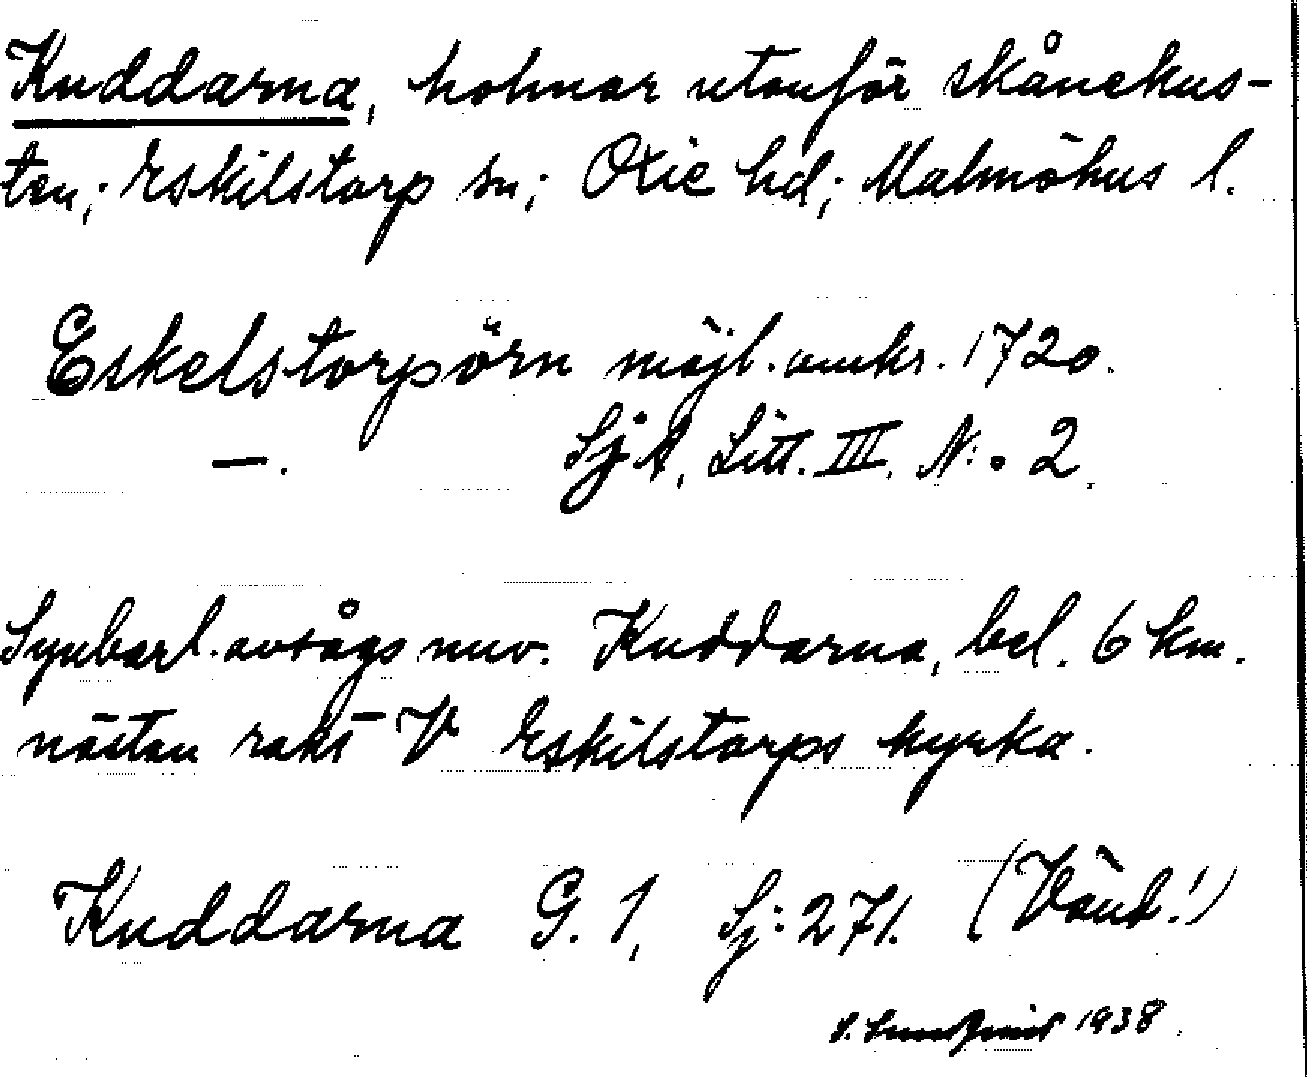 Kuddarna, holmar utanför skånekus-
ten; Eskilstorp sn; Oxie hd; Malmöhus l.
Eskelstorpörn möjl. omkr. 1720.
—. SjA, Litt. III, N:o 2.
Synbarl. avsågs nuv. Kuddarna, bel. 6 km.
nästan rakt V Eskilstorps kyrka.
Kuddarna G. 1, Sj: 271. (Vänd!)
1938